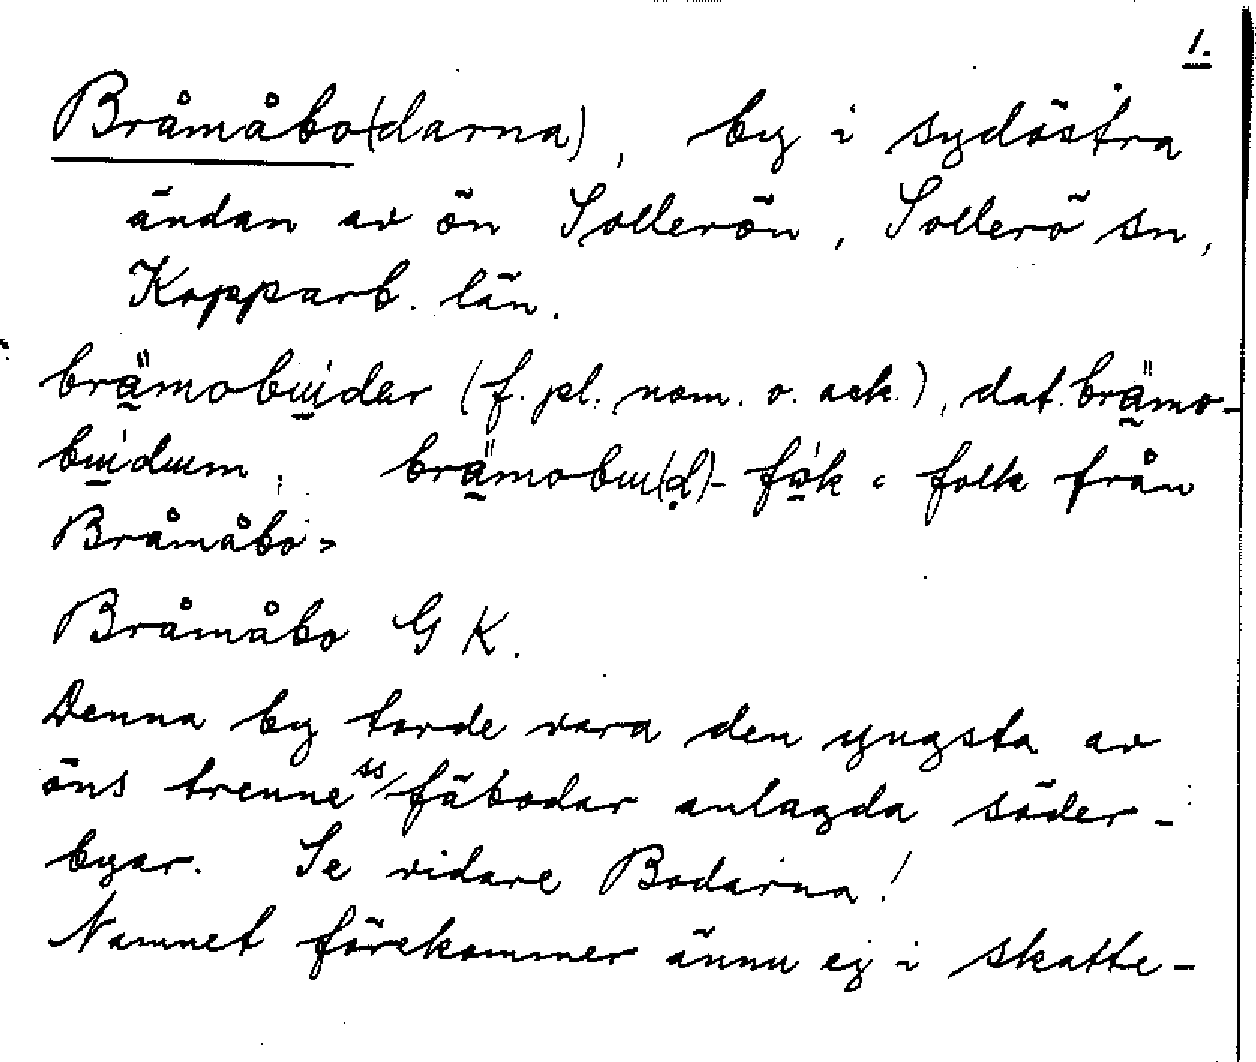 1.
Bråmåbo(darna), by i sydöstra
ändan av ön Sollerön, Sollerö sn,
Kopparb. län.
brä̰mobu̱idar (f. pl. nom. o. ack.), dat. brä̰mo-
bu̱idum; brä̱mobuı(ḍ)-fo̱k = folk från
Bråmåbo>
Bråmåbo G K.
Denna by torde vara den yngsta av
öns trenne ss/fäbodar anlagda söder-
byar. Se vidare Bodarna!
Namnet förekommer ännu ej i skatte-